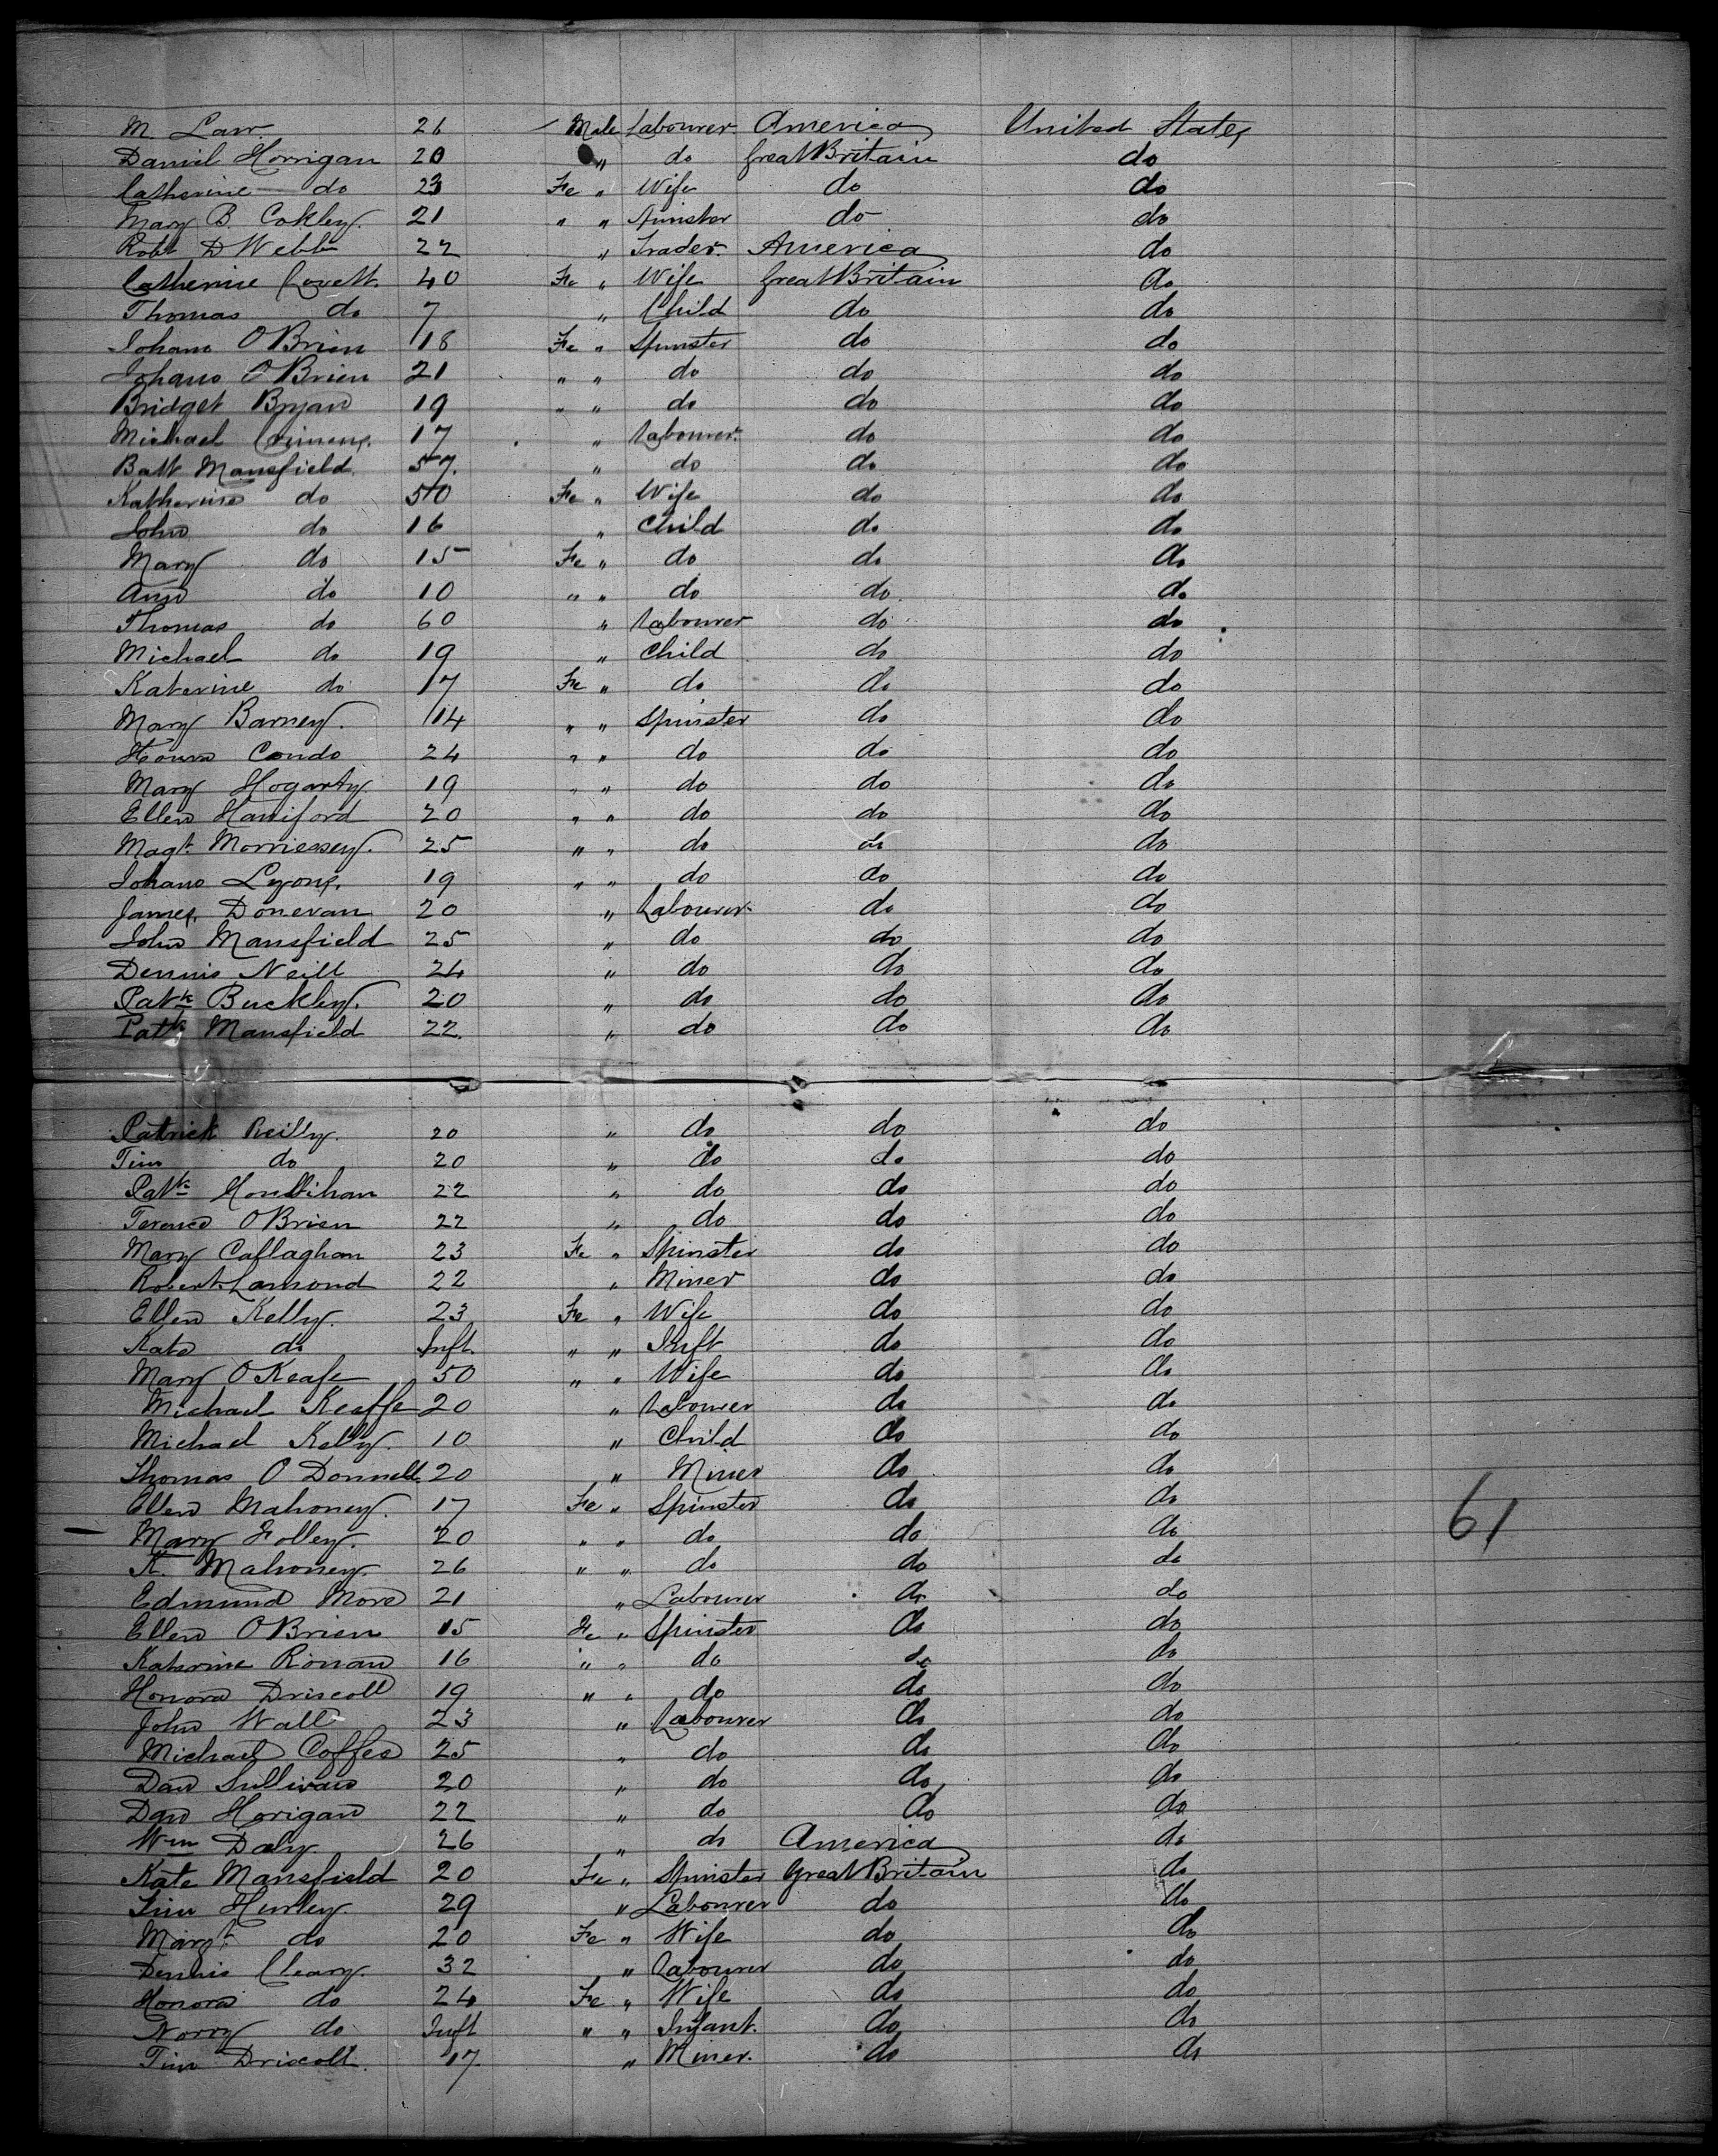 M. Law. 26 Male Labourer America United States
Daniel Horrigan 20 " do Great Britain do
Catherine do 23 Fe " Wife do do
Mary B. Cokley. 21 " " Spinster do do
Robt D Webb 22 " Trader. America do
Catherine Lovett. 40 Fe " Wife Great Britain do
Thomas do 7 " Child do do
Johana O'Brien 18 Fe " Spinster do do
Johana O'Brien 21 " " do do do
Bridget Bryan 19 " " do do do
Michael 17 " Labourer. do do
Batt Mansfield. 57. " do do do
Katherine do 50 Fe " Wife do do
John do 16 " Child do do
Mary do 15 Fe " do do do
Ann do 10 " " do do do
Thomas do 60 " Labourer do do
Michael do 19 " Child do do
Katerine do 17 Fe " do do do
Mary Barney. 14 " " Spinster do do
Condo 24 " " do do do
Mary Hogarty. 19 " " do do do
Ellen Haniford 20 " " do do do
Magt. Morriessey. 25 " " do do do
Johana Lyons. 19 " " do do do
James Donevan 20 " Labourer do do
John Mansfield 25 " do do do
Dennis Neill 24 " do do do
Patk Buckley. 20 " do do do
Patk Mansfield 22. " do do do
Patrick Reilly. 20 " do do do
Tim do 20 " do do do
Patk Houlihan 22 " do do do
Terence O'Brien 22 " do do do
Mary Callaghan 23 Fe " Spinster do do
Robert Lamond 22 " Miner do do
Ellen Kelly. 23 Fe " Wife do do
Kate do Inft. " " Inft do do
Mary O'Keafe 50 " " Wife do do
Michael Keaffe 20 " Labourer do do
Michael Kelly. 10 " Child do do
Thomas O'Donnell 20 " Miner do do
Ellen Mahoney. 17 Fe " Spinster do do
Mary Folley. 20 " " do do do 61
K. Mahoney. 26 " " do do do
Edmund More 21 " Labourer do do
Ellen O'Brien 15 Fe " Spinster do do
Katerine Ronan 16 " " do do do
Honora Driscoll 19 " " do do do
John Wall 23 " Labourer do do
Michael Coffee 25 " do do do
Dan Sullivan 20 " do do do
Dan Horigan 22 " do do do
Wm Daly. 26 " do America do
Kate Mansfield 20 Fe " Spinster Great Britain do
Tim Hurley. 29 " Labourer do do
Margt. do 20 Fe " Wife do do
Dennis Cleary. 32 " Labourer do do
Honora do 24 Fe " Wife do do
Norry do Inft " " Infant. do do
Tim Driscoll. 17 " Miner. do do